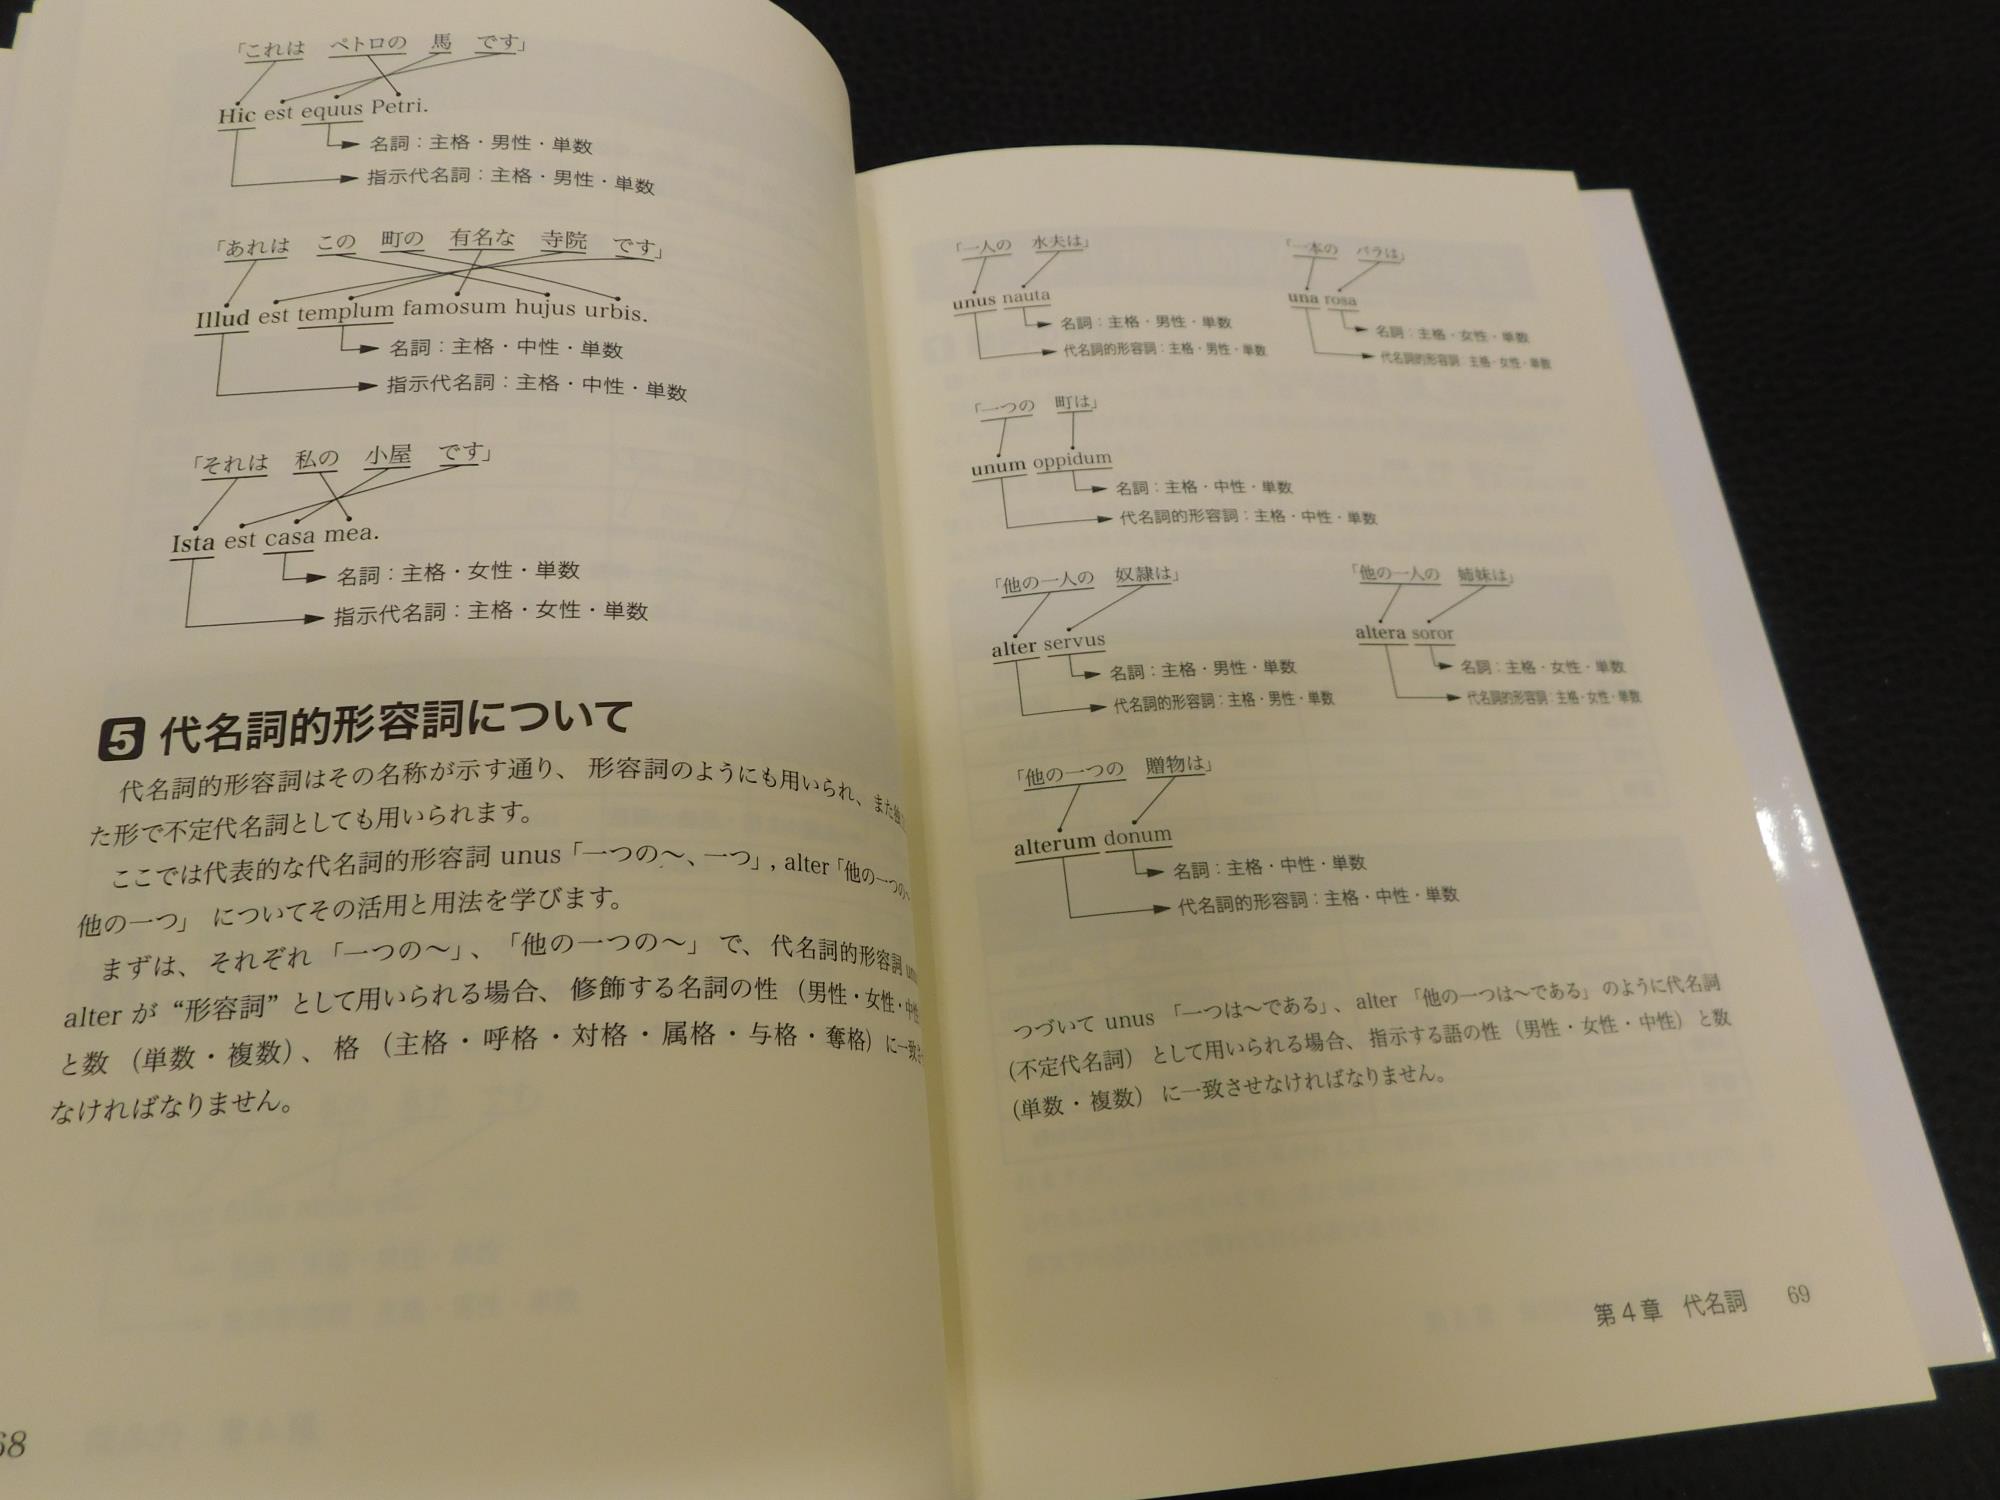 「これは ペトロの 馬 です」
Hic est equus Petri.
名詞：主格・男性・単数
指示代名詞：主格・男性・単数
「あれは この 町の 有名な 寺院 です」
Illud est templum famosum hujus urbis.
名詞：主格・中性・単数
指示代名詞：主格・中性・単数
「それは 私の 小屋 です」
Ista est casa mea.
名詞：主格・女性・単数
指示代名詞：主格・女性・単数
5 代名詞的形容詞について
代名詞的形容詞はその名称が示す通り、形容詞のようにも用いられ、また独
た形で不定代名詞としても用いられます。
ここでは代表的な代名詞的形容詞 unus「一つの〜、一つ」, alter「他の一つの〜
他の一つ」 についてその活用と用法を学びます。
まずは、それぞれ「一つの〜」、「他の一つの〜」で、代名詞的形容詞
alter が “形容詞” として用いられる場合、修飾する名詞の性（男性・女性・中性
と数（単数・複数）、格（主格・呼格・対格・属格・与格・奪格）に一致
なければなりません。
68
「一人の 水夫は」
unus nauta
名詞：主格・男性・単数
代名詞的形容詞：主格・男性・単数
「一本の バラは」
una rosa
名詞：主格・女性・単数
代名詞的形容詞：主格・女性・単数
「一つの 町は」
unum oppidum
名詞：主格・中性・単数
代名詞的形容詞：主格・中性・単数
「他の一人の 奴隷は」
alter servus
名詞：主格・男性・単数
代名詞的形容詞：主格・男性・単数
「他の一人の 姉妹は」
altera soror
名詞：主格・女性・単数
代名詞的形容詞：主格・女性・単数
「他の一つの 贈物は」
alterum donum
名詞：主格・中性・単数
代名詞的形容詞：主格・中性・単数
つづいて unus 「一つは〜である」、alter 「他の一つは〜である」のように代名詞
（不定代名詞）として用いられる場合、指示する語の性（男性・女性・中性）と数
（単数・複数）に一致させなければなりません。
第4章 代名詞 69